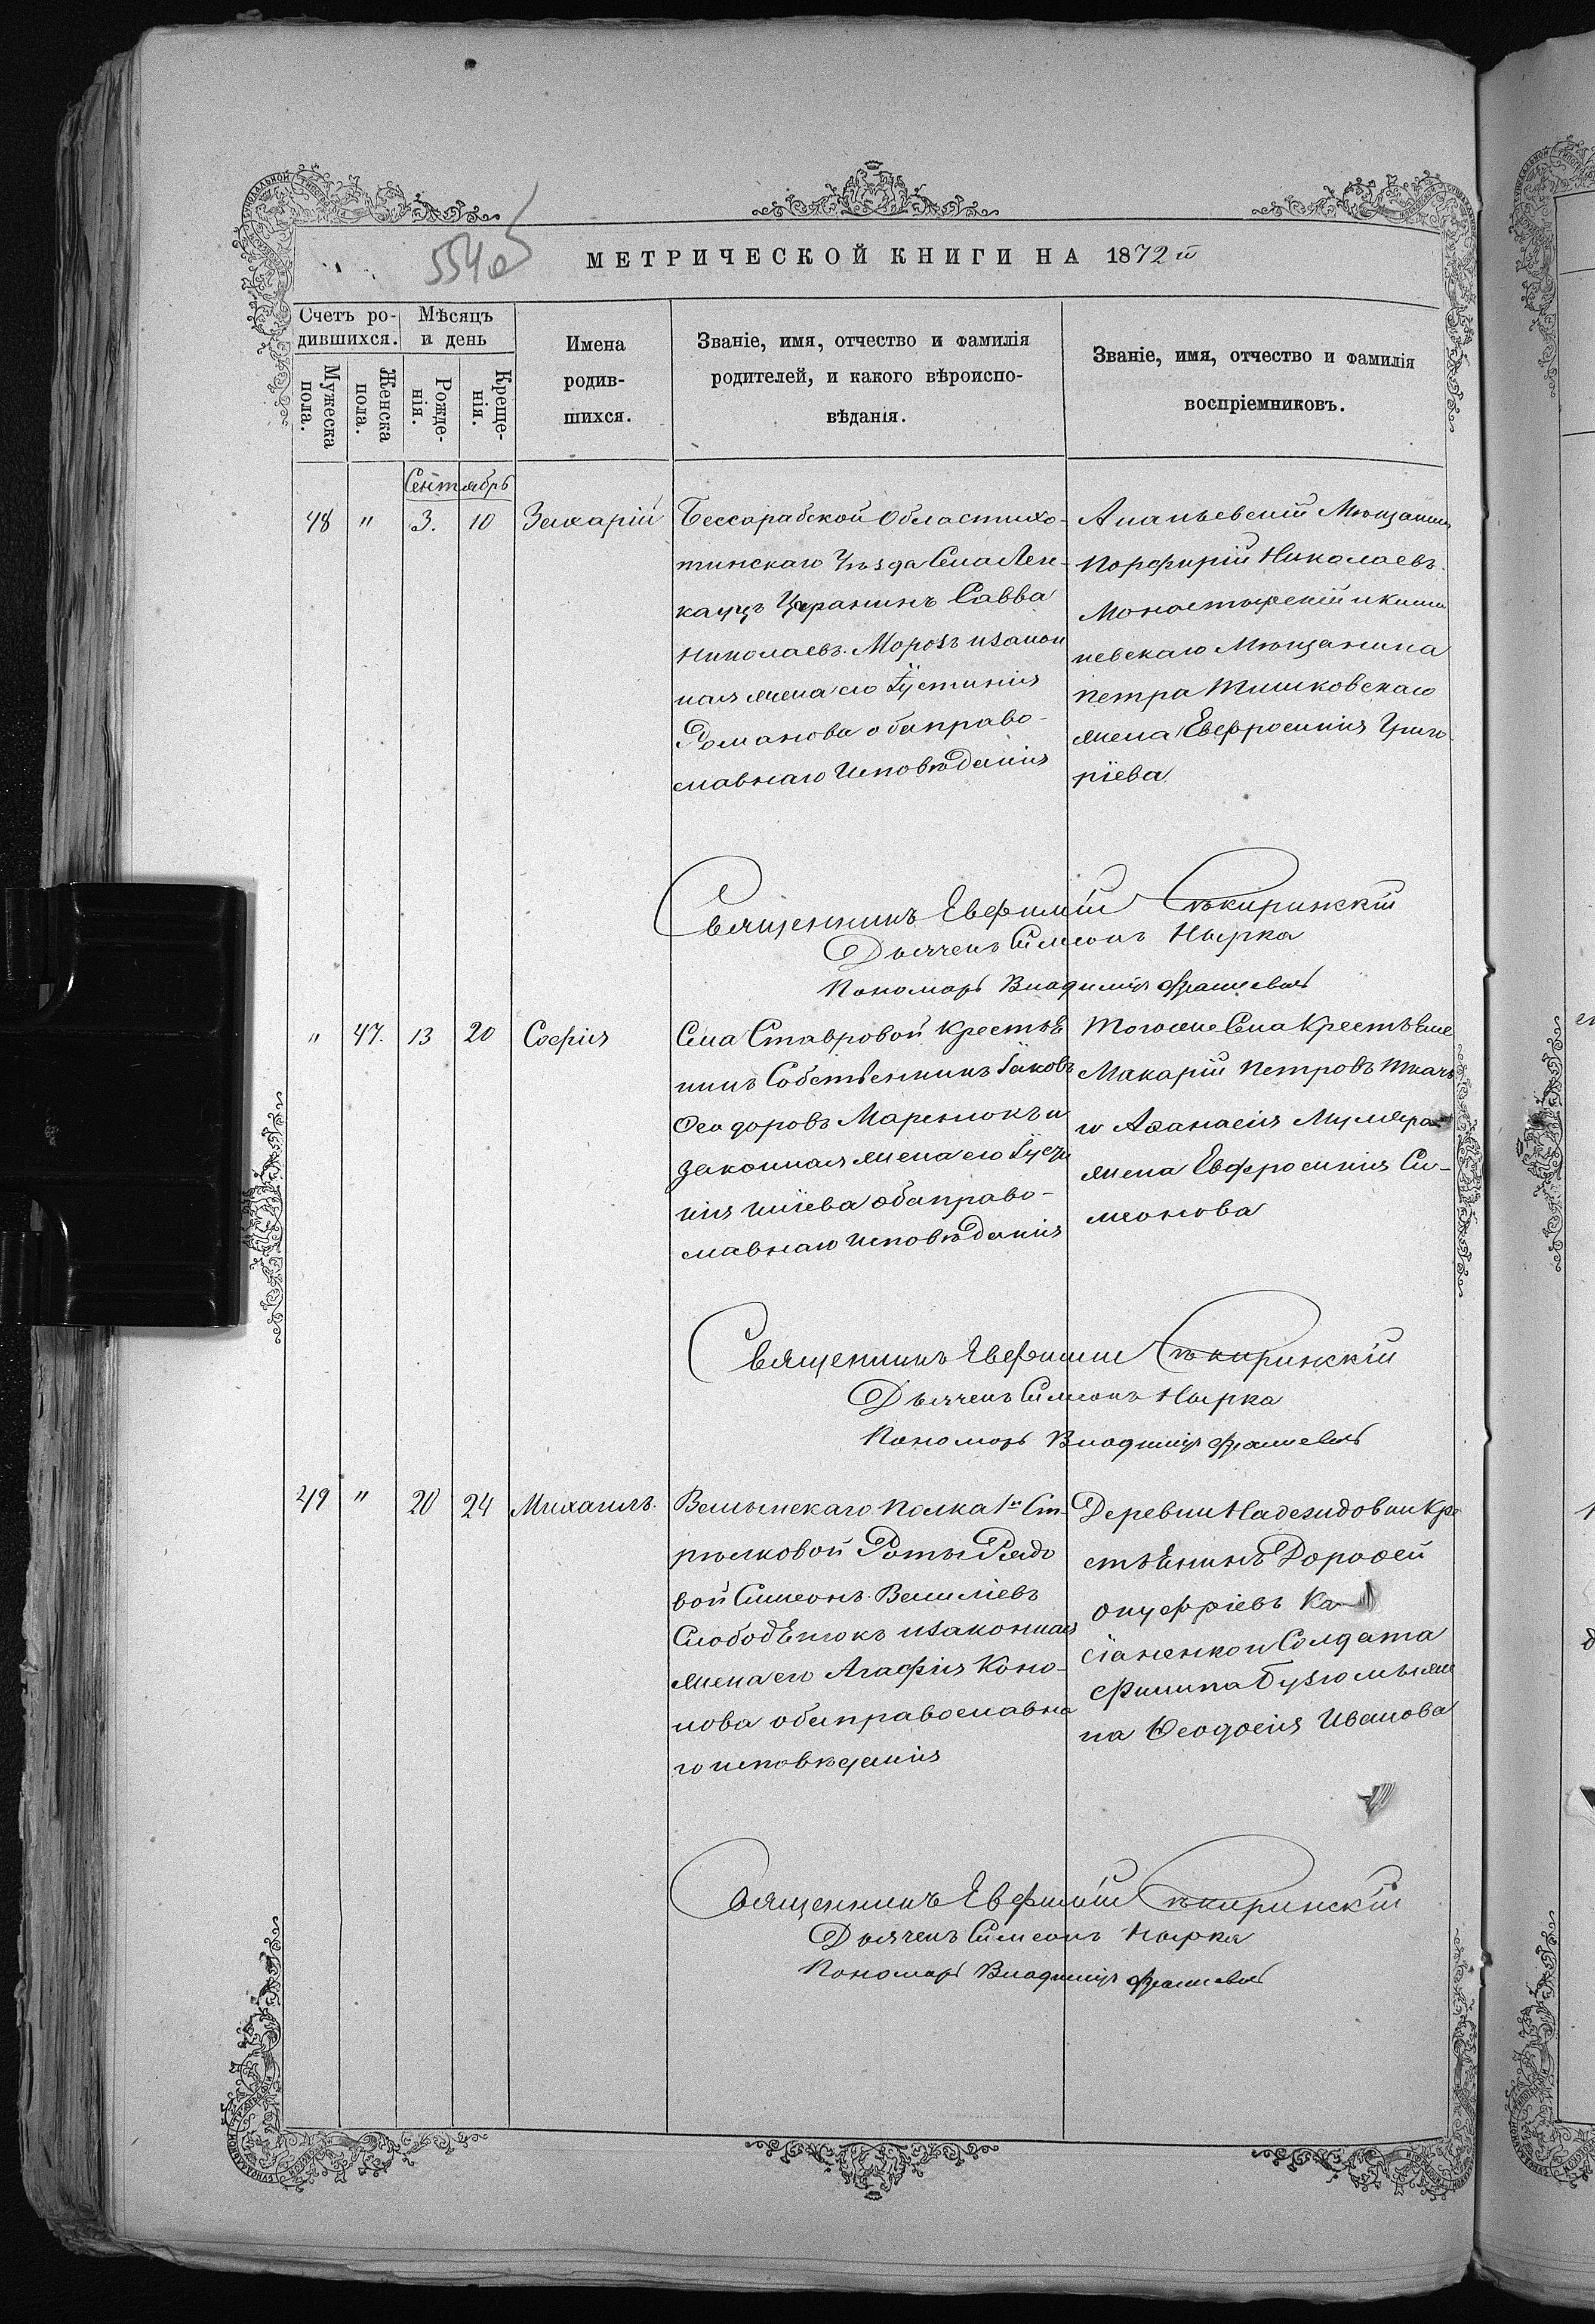 МЕТРИЧЕСКОЙ КНИГИ НА 1872 й
Счетъ ро-
дившихся.
Мѣсяцъ
и день
Мужеска
пола.
Женска
пола.
Рожде-
нія.
Креще-
нія.
Имена
родив-
шихся.
Званіе, имя, отчество и фамилія
родителей, и какого вѣроиспо-
вѣданія.
Званіе, имя, отчество и фамилія
воспріемниковъ.
Сентябрь
48 " 3. 10 Захарій
Бессарабской Области хо-
тинскаго Уѣзда Села Лен-
кауцъ Царанинъ Савва
Николаевъ Морозъ и закон
ная жена его Іустинія
Романова оба право-
славнаго Исповѣданія
Ананьевскій Мѣщанинъ
Порфирій Николаевъ
Монастырскій и киши
невскаго Мѣщанина
Петра Тишковскаго
жена Евфросинія Григо-
ріева
Священникъ Евфимій
Дьячекъ Симеонъ Нырка
Пономарь Владиміръ
" 47. 13 20 Софія
Села Ставровой Крестья
нинъ Собственникъ Іаковъ
Ѳеодоровъ Маренюкъ и
законная жена его
Иліева оба право-
славнаго Исповѣданія
Того же Села Крестьяне
Макарій Петровъ Ткачъ
и Аѳанасія Муляра
жена Евфросинія Си-
меонова
Священникъ Евфимій
Дьячекъ Симеонъ Нырка
Пономарь Владиміръ
49 " 20 24 Михаилъ.
Волынскаго полка 1й Ст-
рѣлковой Роты Рядо
вой Симеонъ Василіевъ
Слободянюкъ и законная
жена его Агафія Коно-
нова оба православна
го исповѣданія
Деревни Надеждовки Кре
стьянинъ Дороѳей
Онуфріевъ Ка
сіаненко и Солдата
Филипа же
на Ѳеодосія Иванова
Священникъ Евфимій
Дьячекъ Симеонъ Нырка
Пономарь Владиміръ